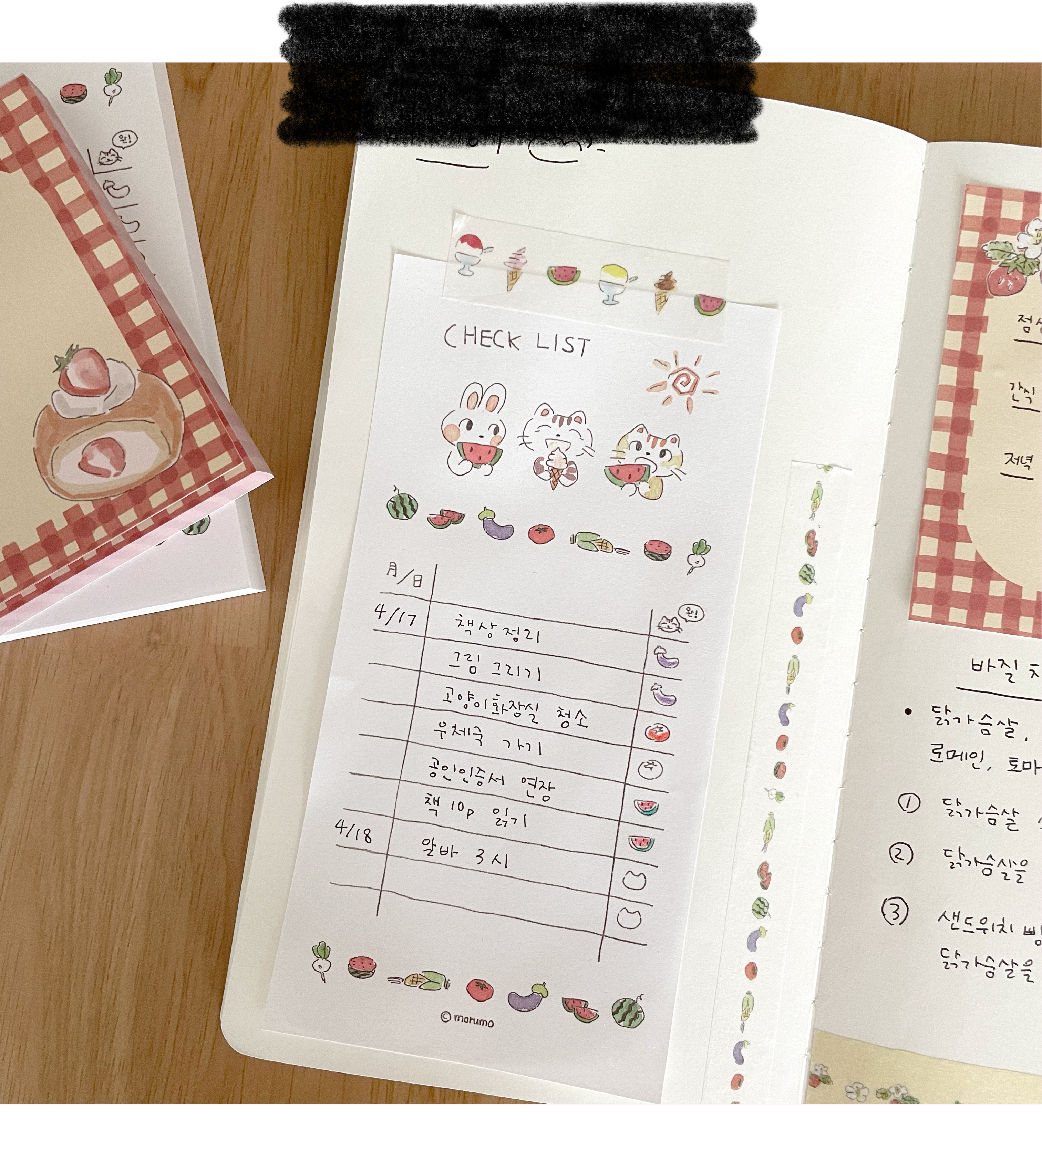 완!
CHECK LIST
月/日
완!
4/17 책상 정리
그림 그리기
고양이화장실 청소
우체국 가기
공인인증서 연장
책 10p 읽기
4/18 알바 3시
© morumo
간식
저녁
바질
• 닭가슴살,
로메인,
① 닭가슴살
② 닭가슴살을
③ 샌드위치
닭가슴살을